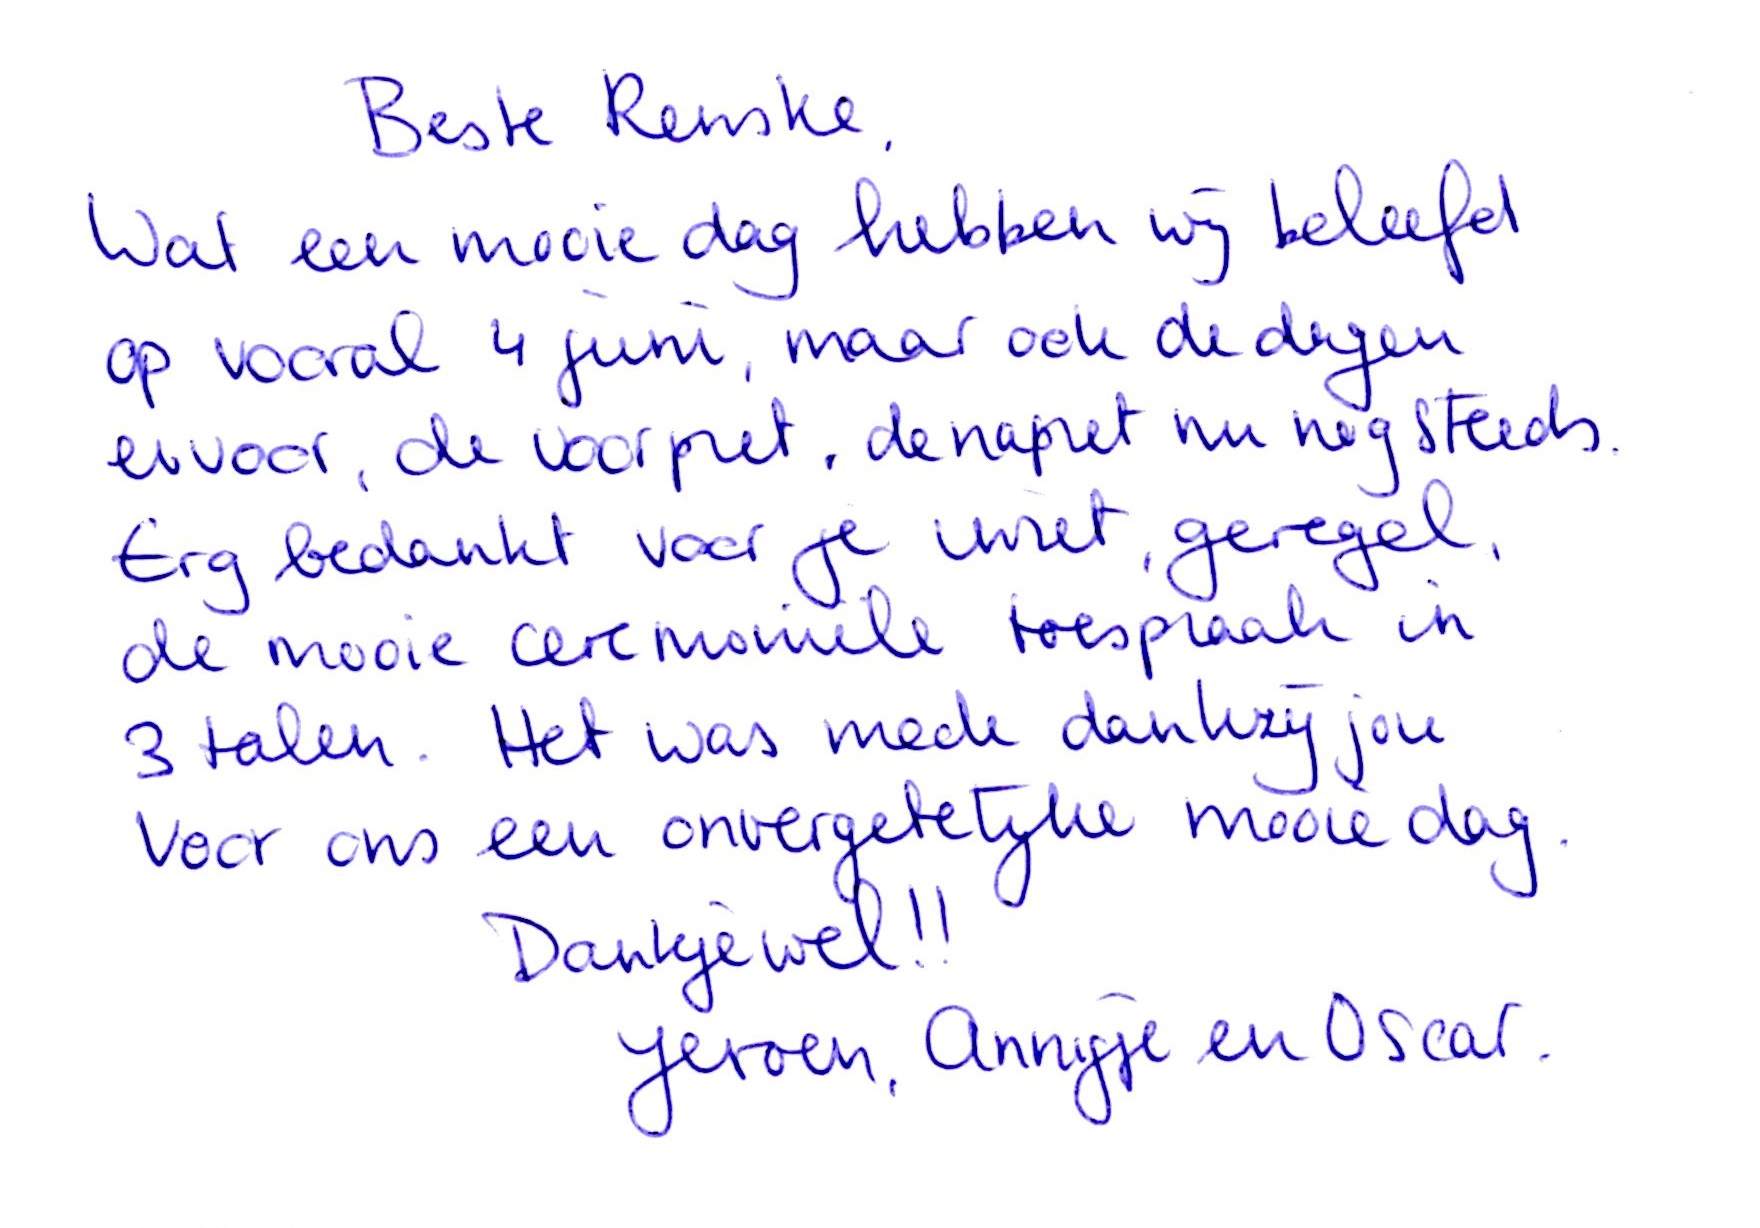 Beste Renske,
Wat een mooie dag hebben wij beleefd
op vooral 4 juni, maar ook de dagen
ervoor, de voorpret, de napret nu nog steeds.
Erg bedankt voor je inzet, geregel,
de mooie ceremoniele toespraak in
3 talen. Het was mede dankzij jou
voor ons een onvergetelijke mooie dag.
Dankjewel!!
Jeroen, Annigje en Oscar.